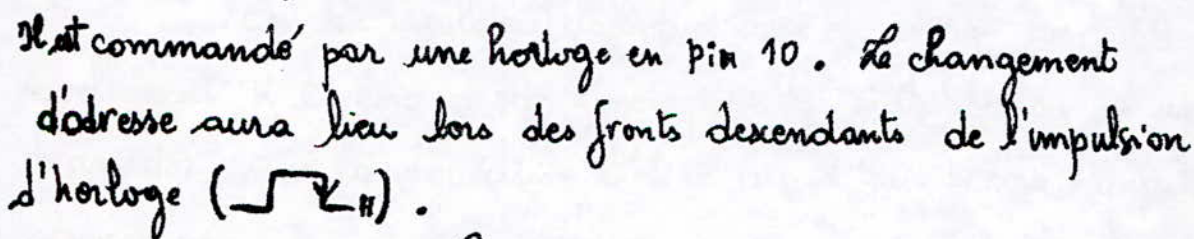 Il est commandé par une horloge en pin 10. Le changement
d'adresse aura lieu lors des fronts descendants de l'impulsion
d'horloge ( H).